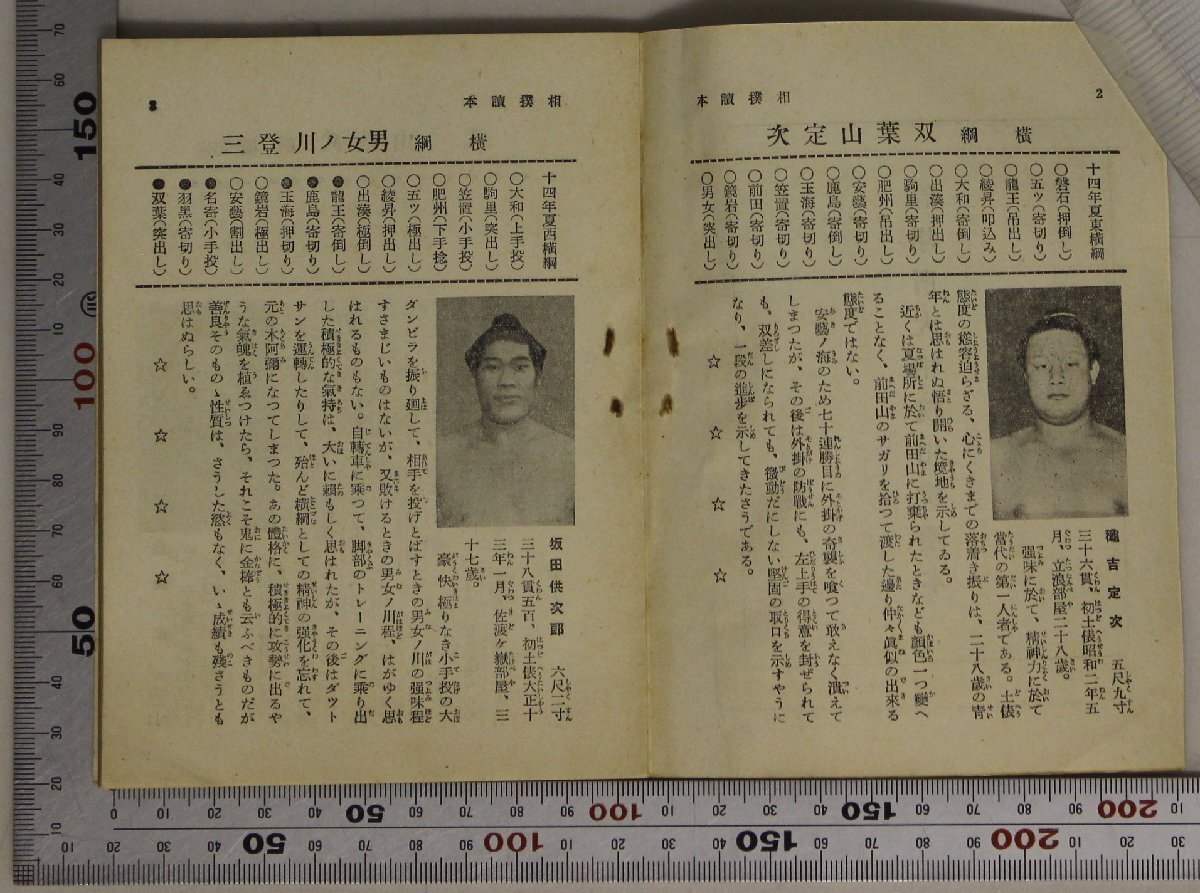 2
相撲讀本
横綱 双葉山定次
十四年夏東横綱
○磐石(押倒し)
○五ツ(寄切り)
○龍王(吊出し)
○綾昇(叩込み)
○大和(寄倒し)
○出湊(押出し)
○駒里(寄切り)
○肥州(吊出し)
○安藝(寄切り)
○鹿島(寄倒し)
○玉海(寄切り)
○笠置(寄切り)
○前田(寄切り)
○鏡岩(寄切り)
○男女(突出し)
龝吉定次 五尺九寸
三十六貫、初土俵昭和二年五
月、立浪部屋二十八歳。
强味に於て、精神力に於て
當代の第一人者である。土俵
態度の悠容迫らざる、心にくきまでの落着き振りは、二十八歳の青
年とは思はれぬ悟り開いた境地を示してゐる。
近くは夏場所に於て前田山に打棄られたときなども顏色一つ變へ
ることなく、前田山のサガリを拾つて渡した邊り仲々眞似の出來る
態度ではない。
安藝ノ海のため七十連勝目に外掛の奇襲を喰つて敢えなく潰えて
しまつたが、その後は外掛の防戰にも、左上手の得意を封ぜられて
も、双差しになられても、微動だにしない堅固の取口を示すやうに
なり、一段の進歩を示してきたさうである。
☆ ☆ ☆ ☆
3
相撲讀本
横綱 男女ノ川登三
十四年夏西横綱
○大和(上手投)
○駒里(突出し)
○笠置(小手投)
○肥州(下手捻)
○五ツ(極出し)
○綾昇(押出し)
○出湊(極倒し)
●龍王(寄倒し)
●鹿島(寄切り)
●玉海(押切り)
○鏡岩(極出し)
○安藝(割出し)
●名寄(小手投)
●羽黑(寄切り)
●双葉(突出し)
坂田供次郎 六尺二寸
三十八貫五百、初土俵大正十
三年一月、佐渡ヶ嶽部屋、三
十七歳。
豪快極りなき小手投の大
ダンビラを振り廻して、相手を投げとばすときの男女ノ川の强味程
すさまじいものはないが、又敗けるときの男女ノ川程、はがゆく思
はれるものもない。自轉車に乘つて、脚部のトレーニングに乘り出
した積極的な氣持は、大いに賴もしく思はれたが、その後はダツト
サンを運轉したりして、殆んど横綱としての精神の强化を忘れて、
元の木阿彌になつてしまつた。あの體格に、積極的に攻勢に出るや
うな氣魄を植ゑつけたら、それこそ鬼に金棒とも云ふべきものだが
善良そのものゝ性質は、さうした慾もなく、いゝ成績も殘さうとも
思はぬらしい。
☆ ☆ ☆ ☆